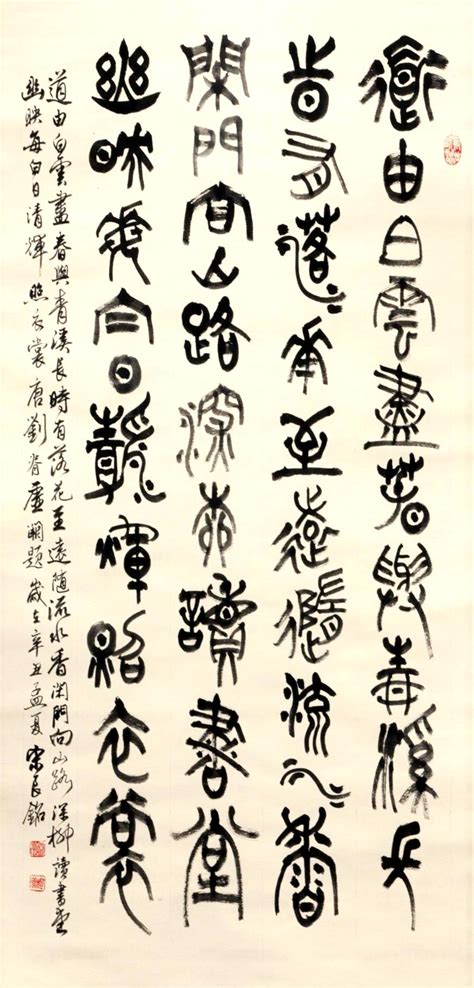 道由白雲盡春與青溪長
時有落花至遠隨流水香
閑門向山路深柳讀書堂
幽映每白日清輝照衣裳
道由白雲盡春與青溪長時有落花至遠随流水香閑門向山路深柳讀書堂
幽映每白日清輝照衣裳唐劉眘虛闕題歲在辛丑孟夏宋良銘